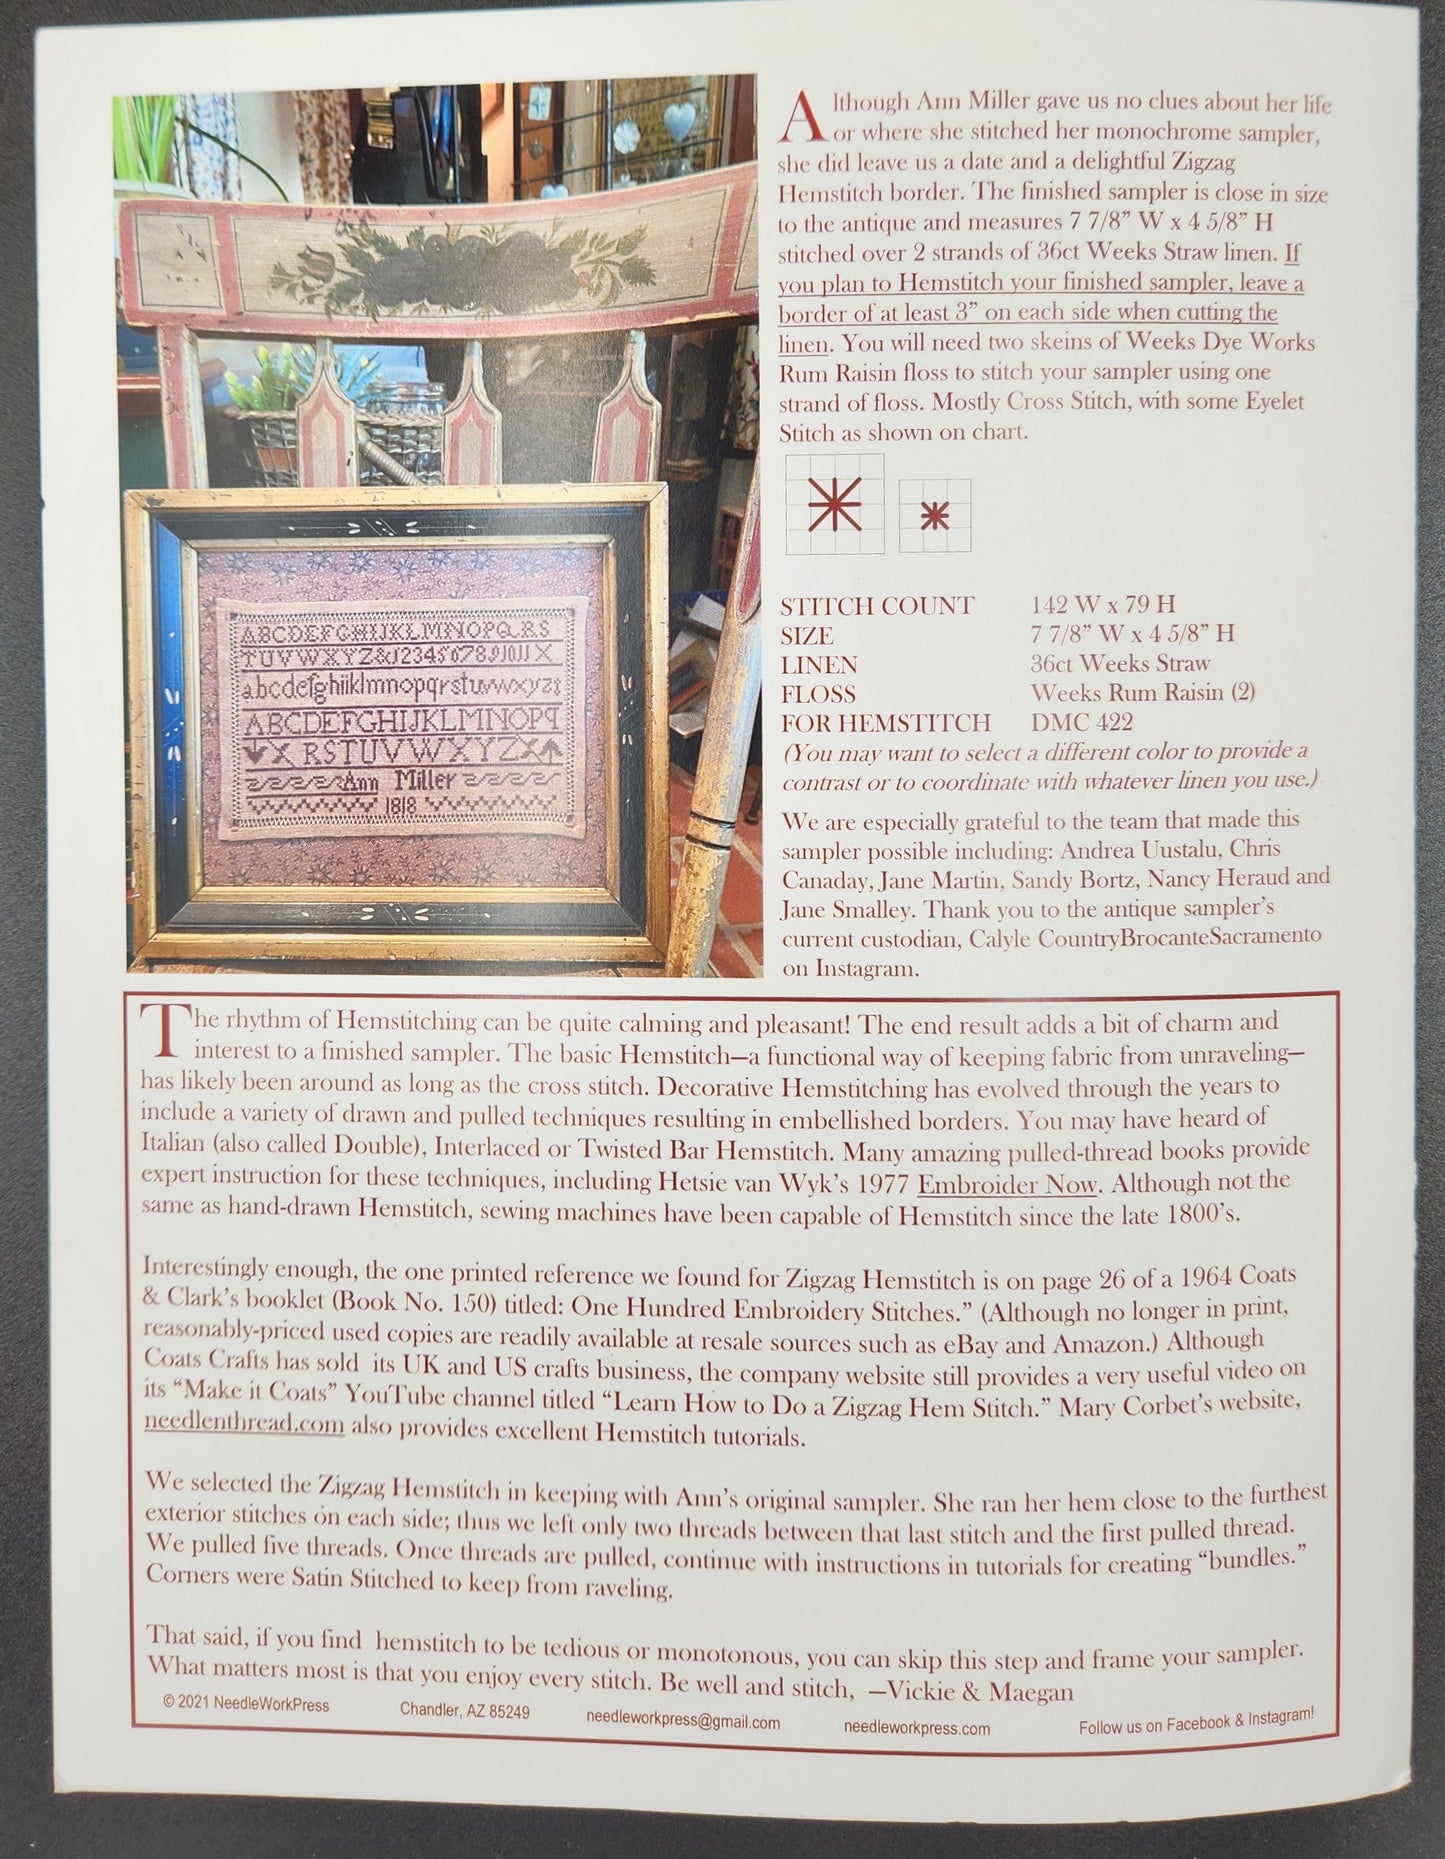 Although Ann Miller gave us no clues about her life
or where she stitched her monochrome sampler,
she did leave us a date and a delightful Zigzag
Hemstitch border. The finished sampler is close in size
to the antique and measures 7 7/8” W x 4 5/8” H
stitched over 2 strands of 36ct Weeks Straw linen. If
you plan to Hemstitch your finished sampler, leave a
border of at least 3” on each side when cutting the
linen. You will need two skeins of Weeks Dye Works
Rum Raisin floss to stitch your sampler using one
strand of floss. Mostly Cross Stitch, with some Eyelet
Stitch as shown on chart.
STITCH COUNT 142 W x 79 H
SIZE 7 7/8” W x 4 5/8” H
LINEN 36ct Weeks Straw
FLOSS Weeks Rum Raisin (2)
FOR HEMSTITCH DMC 422
(You may want to select a different color to provide a
contrast or to coordinate with whatever linen you use.)
We are especially grateful to the team that made this
sampler possible including: Andrea Uustalu, Chris
Canaday, Jane Martin, Sandy Bortz, Nancy Heraud and
Jane Smalley. Thank you to the antique sampler’s
current custodian, Calyle CountryBrocanteSacramento
on Instagram.
ABCDEFGHIJKLMNOPQRS
TUVWXYZ&1234567891011X
abcdefghiiklmnopqrstuvwxyz
ABCDEFGHIJKLMNOPQ
RSTUVWXYZ
Ann Miller
1818
The rhythm of Hemstitching can be quite calming and pleasant! The end result adds a bit of charm and
interest to a finished sampler. The basic Hemstitch—a functional way of keeping fabric from unraveling—
has likely been around as long as the cross stitch. Decorative Hemstitching has evolved through the years to
include a variety of drawn and pulled techniques resulting in embellished borders. You may have heard of
Italian (also called Double), Interlaced or Twisted Bar Hemstitch. Many amazing pulled-thread books provide
expert instruction for these techniques, including Hetsie van Wyk’s 1977 Embroider Now. Although not the
same as hand-drawn Hemstitch, sewing machines have been capable of Hemstitch since the late 1800’s.
Interestingly enough, the one printed reference we found for Zigzag Hemstitch is on page 26 of a 1964 Coats
& Clark’s booklet (Book No. 150) titled: One Hundred Embroidery Stitches.” (Although no longer in print,
reasonably-priced used copies are readily available at resale sources such as eBay and Amazon.) Although
Coats Crafts has sold its UK and US crafts business, the company website still provides a very useful video on
its “Make it Coats” YouTube channel titled “Learn How to Do a Zigzag Hem Stitch.” Mary Corbet’s website,
needlenthread.com also provides excellent Hemstitch tutorials.
We selected the Zigzag Hemstitch in keeping with Ann’s original sampler. She ran her hem close to the furthest
exterior stitches on each side; thus we left only two threads between that last stitch and the first pulled thread.
We pulled five threads. Once threads are pulled, continue with instructions in tutorials for creating “bundles.”
Corners were Satin Stitched to keep from raveling.
That said, if you find hemstitch to be tedious or monotonous, you can skip this step and frame your sampler.
What matters most is that you enjoy every stitch. Be well and stitch, —Vickie & Maegan
© 2021 NeedleWorkPress Chandler, AZ 85249 needleworkpress@gmail.com needleworkpress.com Follow us on Facebook & Instagram!